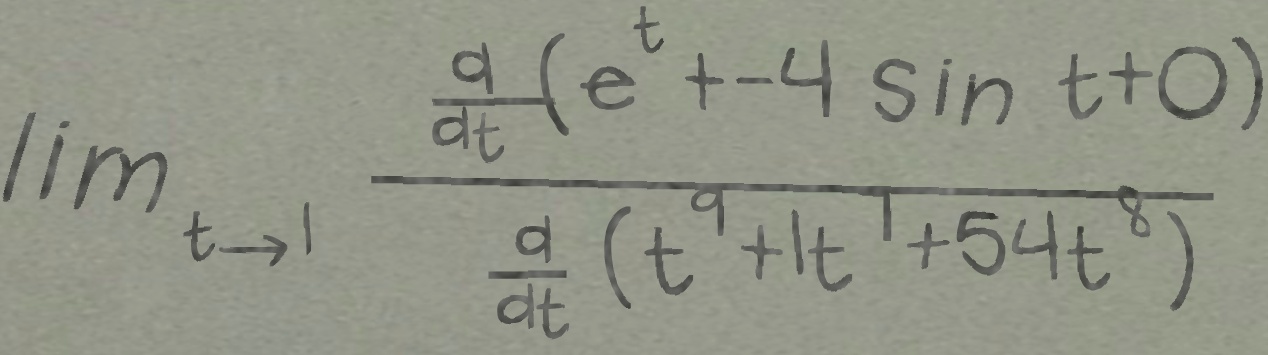 \lim_{t \to 1} \frac{\frac{d}{dt}(e^t + -4 \sin t + 0)}{\frac{d}{dt}(t^9 + 1t^1 + 54t^8)}